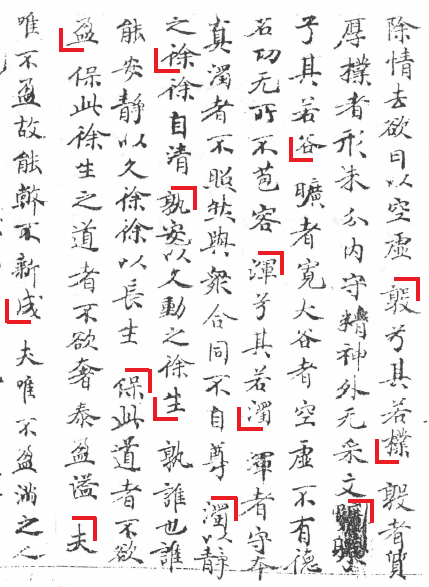 除情去欲日以空虚敦兮其若樸敦者質
厚樸者形未分内守精神外无采文曠
兮其若谷曠者寛大谷者空虚不有德
名功无所不苞容渾兮其若濁渾者守本
真濁者不照然與衆合同不自尊濁以静
之徐徐自清孰安以久動之徐生孰誰也誰
能安静以久徐徐以長生保此道者不欲
盈保此徐生之道者不欲奢泰盈溢夫
唯不盈故能弊不新成夫唯不盈滿之